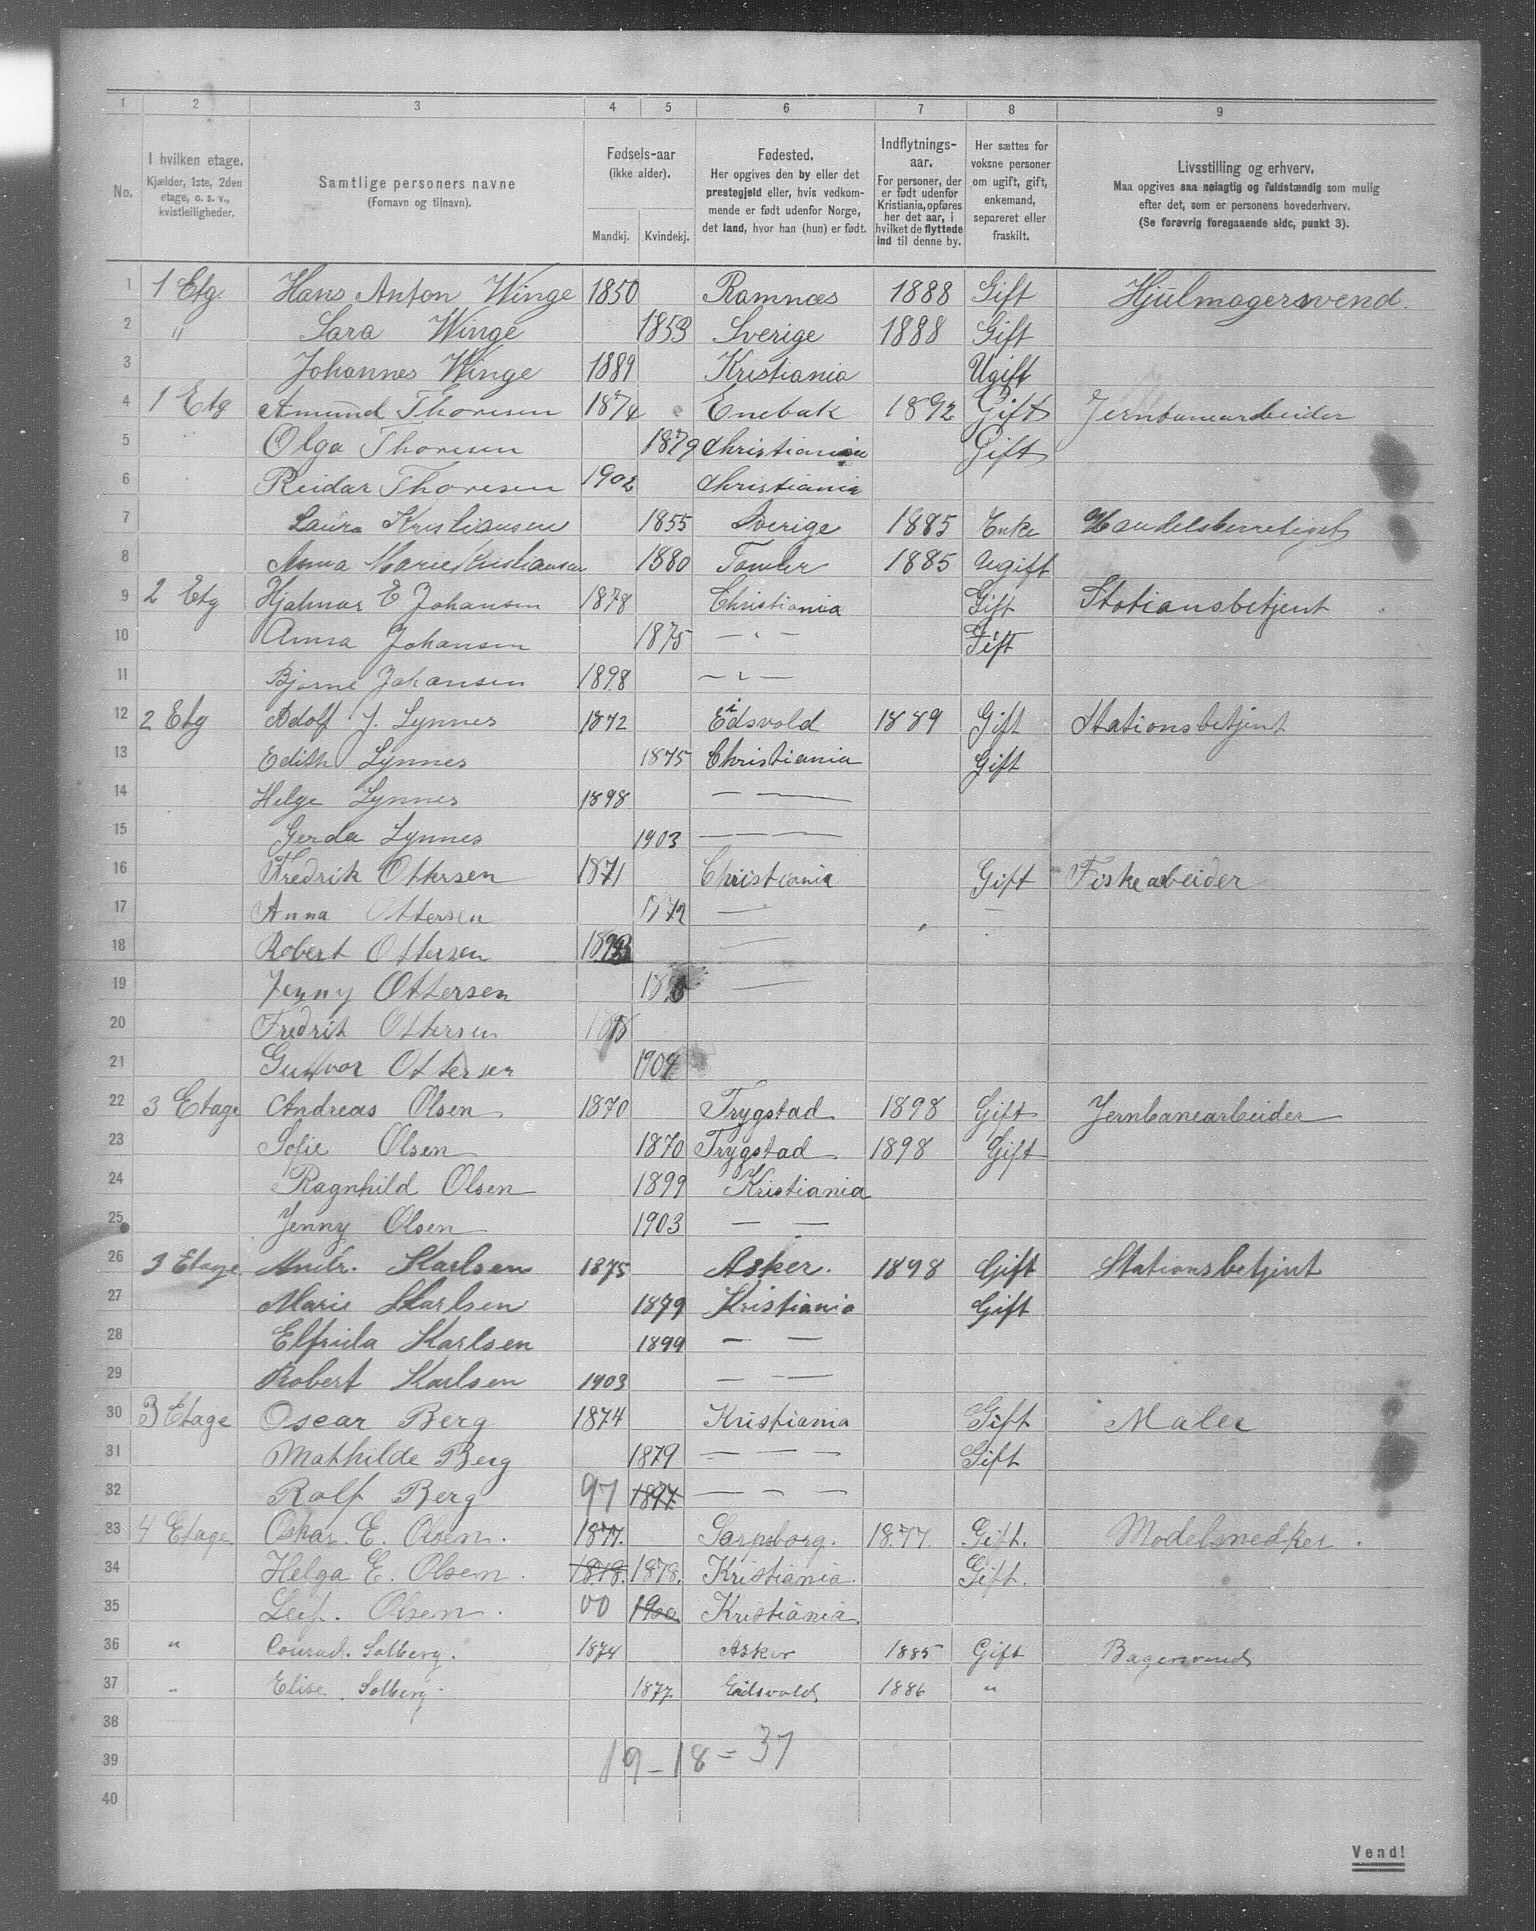 1 2 3 4 5 6 7 8 9
No.
I hvilken etage.
Kjælder, 1ste, 2den
etage, o. s. v.,
kvistleiligheder.
Samtlige personers navne
(Fornavn og tilnavn).
Fødsels-aar
(ikke alder).
Mandkj. Kvindekj.
Fødested.
Her opgives den by eller det
prestegjeld eller, hvis vedkom-
mende er født udenfor Norge,
det land, hvor han (hun) er født.
Indflytnings-
aar.
For personer, der
er født udenfor
Kristiania, opføres
her det aar, i
hvilket de flyttede
ind til denne by.
Her sættes for
voksne personer
om ugift, gift,
enkemand,
separeret eller
fraskilt.
Livsstilling og erhverv.
Maa opgives saa nøiagtig og fuldstændig som mulig
efter det, som er personens hovederhverv.
(Se forøvrig foregaaende side, punkt 3).
1 1 Etg. Hans Anton Winge 1850 Ramnæs 1888 Gift Hjulmagersvend.
2 " Sara Winge 1853 Sverige 1888 Gift
3 Johannes Winge 1889 Kristiania Ugift
4 1 Etg Amund Thoresen 1874 Enebak 1892 Gift Jernbanearbeider
5 Olga Thoresen 1879 Christiania Gift
6 Reidar Thoresen 1902 Christiania
7 Laura Kristiansen 1855 Sverige 1885 Enke Handelsberretiget
8 Anna Marie Kristiansen 1880 1885 Ugift
9 2 Etg Hjalmar E Johansen 1878 Christiania Gift Stationsbetjent
10 Anna Johansen 1875 — " — Gift
11 Bjarne Johansen 1898 — " —
12 2 Etg Adolf J. Lynnes 1872 Eidsvold 1889 Gift Stationsbetjent
13 Edith Lynnes 1875 Christiania Gift
14 Helge Lynnes 1898 — —
15 Gerda Lynnes 1903 — —
16 Fredrik Ottersen 1871 Christiania Gift Fiskearbeider
17 Anna Ottersen 1872 — —
18 Robert Ottersen —
19 Jenny Ottersen —
20 Fredrik Ottersen
21 Gunvor Ottersen 1904
22 3 Etage Andreas Olsen 1870 Trygstad 1898 Gift Jernbanearbeider
23 Sofie Olsen 1870 Trygstad 1898 Gift
24 Ragnhild Olsen 1899 Kristiania
25 Jenny Olsen 1903 — —
26 3 Etage Andr. Karlsen 1875 Asker. 1898 Gift Stationsbetjent
27 Marie Karlsen 1879 Kristiania Gift
28 Elfrida Karlsen 1899 — —
29 Robert Karlsen 1903 — —
30 3 Etage Oscar Berg 1874 Kristiania Gift Maler
31 Mathilde Berg 1879 — — — Gift
32 Rolf Berg 97 1897 — — —
33 4 Etage Oskar. E. Olsen. 1877. Sarpsborg. 1877 Gift. Modelsnedker.
34 Helga E. Olsen. 1878. 1878. Kristiania. Gift.
35 Leif. Olsen. 00 1900 Kristiania.
36 " Conrad. Solberg. 1874 Asker 1885 Gift Bagersvend
37 " Elise. Solberg. 1877 Eidsvold 1886 "
38
39 19 - 18 = 37
40
Vend!